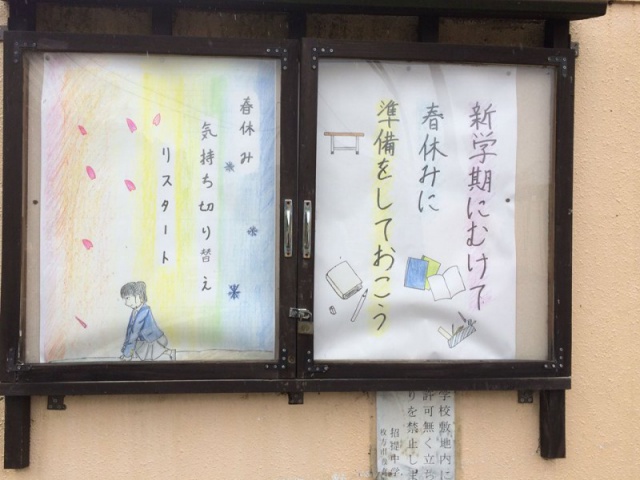 新学期にむけて
春休みに
準備をしておこう
春休み
気持ち切り替え
リスタート
学校敷地内に
許可無く立ち
りを禁止しま
招提中学
枚方市